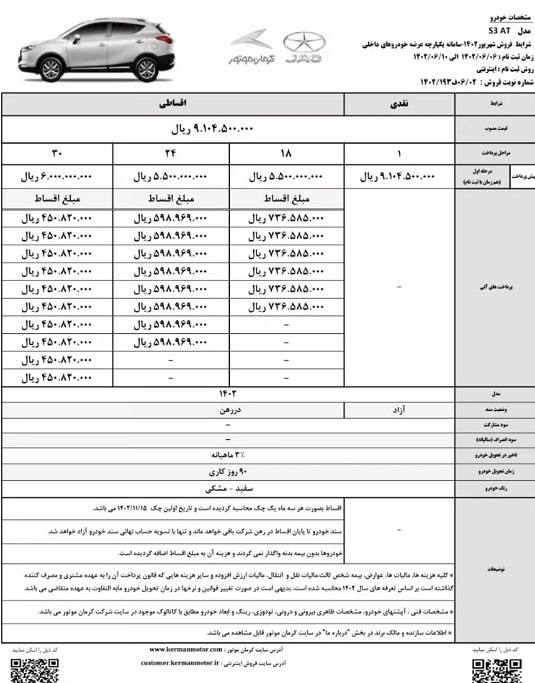 مشخصات خودرو
مدل S3 AT
شرایط فروش شهریور۱۴۰۲-سامانه یکپارچه عرضه خودروهای داخلی
زمان ثبت نام : ۱۴۰۲/۰۶/۰۶ الی ۱۴۰۲/۰۶/۱۰
روش ثبت نام : اینترنتی
شماره نوبت فروش : ۱۴۰۲/۱۹۳ف۰۶/۰۲
JAC
کرمان موتور
شرایط نقدی اقساطی
قیمت مصوب ۹.۱۰۴.۵۰۰.۰۰۰ ریال
مراحل پرداخت ۱ ۱۸ ۲۴ ۳۰
پیش پرداخت مرحله اول (همزمان با ثبت نام) ۹.۱۰۴.۵۰۰.۰۰۰ ریال ۵.۵۰۰.۰۰۰.۰۰۰ ریال ۵.۵۰۰.۰۰۰.۰۰۰ ریال ۶.۰۰۰.۰۰۰.۰۰۰ ریال
مبلغ اقساط مبلغ اقساط مبلغ اقساط
پرداخت های آتی –
۷۳۶.۵۸۵.۰۰۰ ریال ۵۹۸.۹۶۹.۰۰۰ ریال ۴۵۰.۸۲۰.۰۰۰ ریال
۷۳۶.۵۸۵.۰۰۰ ریال ۵۹۸.۹۶۹.۰۰۰ ریال ۴۵۰.۸۲۰.۰۰۰ ریال
۷۳۶.۵۸۵.۰۰۰ ریال ۵۹۸.۹۶۹.۰۰۰ ریال ۴۵۰.۸۲۰.۰۰۰ ریال
۷۳۶.۵۸۵.۰۰۰ ریال ۵۹۸.۹۶۹.۰۰۰ ریال ۴۵۰.۸۲۰.۰۰۰ ریال
۷۳۶.۵۸۵.۰۰۰ ریال ۵۹۸.۹۶۹.۰۰۰ ریال ۴۵۰.۸۲۰.۰۰۰ ریال
۷۳۶.۵۸۵.۰۰۰ ریال ۵۹۸.۹۶۹.۰۰۰ ریال ۴۵۰.۸۲۰.۰۰۰ ریال
– ۵۹۸.۹۶۹.۰۰۰ ریال ۴۵۰.۸۲۰.۰۰۰ ریال
– ۵۹۸.۹۶۹.۰۰۰ ریال ۴۵۰.۸۲۰.۰۰۰ ریال
– – ۴۵۰.۸۲۰.۰۰۰ ریال
– – ۴۵۰.۸۲۰.۰۰۰ ریال
مدل ۱۴۰۲
وضعیت سند آزاد دررهن
سود مشارکت –
سود انصراف (سالیانه) –
تاخیر در تحویل خودرو ۳٪ ماهیانه
زمان تحویل خودرو ۹۰ روز کاری
رنگ خودرو سفید - مشکی
توضیحات –
اقساط بصورت هر سه ماه یک چک محاسبه گردیده است و تاریخ اولین چک ۱۴۰۲/۱۱/۱۵ می باشد.
سند خودرو تا پایان اقساط در رهن شرکت باقی خواهد ماند و تنها با تسویه حساب نهائی سند خودرو آزاد خواهد شد.
خودروها بدون بیمه بدنه واگذار نمی گردند و هزینه آن به مبلغ اقساط اضافه گردیده است.
* کلیه هزینه ها، مالیات ها، عوارض، بیمه شخص ثالث،مالیات نقل و انتقال، مالیات ارزش افزوده و سایر هزینه هایی که قانون پرداخت آن را به عهده مشتری و مصرف کننده
گذاشته است بر اساس تعرفه های سال ۱۴۰۲ محاسبه شده است. بدیهی است در صورت تغییر قوانین و نرخها در زمان تحویل خودرو مابه التفاوت به عهده متقاضی می باشد.
* مشخصات فنی ، آپشنهای خودرو، مشخصات ظاهری بیرونی و درونی، تودوزی، رینگ و ابعاد خودرو مطابق با کاتالوگ موجود در سایت شرکت کرمان موتور می باشد.
* اطلاعات سازنده و مالک برند در بخش "درباره ما" در سایت کرمان موتور قابل مشاهده می باشد.
کد ذیل را اسکن نمایید
آدرس سایت کرمان موتور : www.kermanmotor.com
آدرس سایت فروش اینترنتی : customer.kermanmotor.ir
کد ذیل را اسکن نمایید